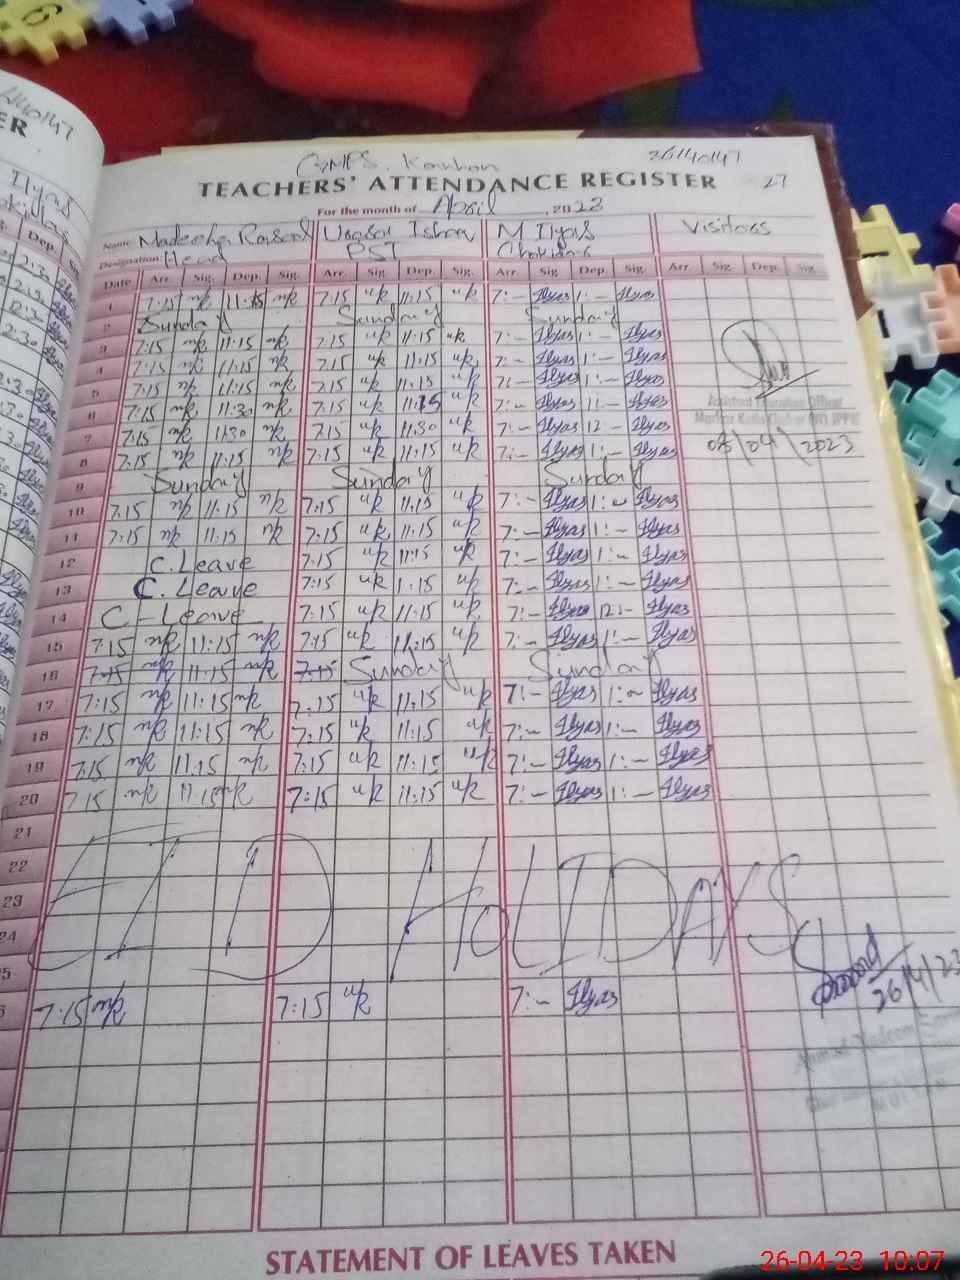 26140147
TEACHERS' ATTENDANCE REGISTER 27
For the month of April, 2023
Name M Ilyas Visitors
Designation Head PST
Date Arr. Sig. Dep. Sig. Arr. Sig. Dep. Sig. Arr. Sig. Dep. Sig. Arr. Sig. Dep. Sig.
1 7:15 mk 11:15 mk 7:15 uk 11:15 uk 7:- Ilyas 1:- Ilyas
2 Sunday Sunday Sunday
3 7:15 mk 11:15 mk 7:15 uk 11:15 uk 7:- Ilyas 1:- Ilyas
4 7:15 mk 11:15 mk 7:15 uk 11:15 uk 7:- Ilyas 1:- Ilyas
5 7:15 mk 11:15 mk 7:15 uk 11:15 uk 7:- Ilyas 1:- Ilyas
6 7:15 mk 11:30 mk 7:15 uk 11:15 uk 7:- Ilyas 11:- Ilyas
7 7:15 mk 11:30 mk 7:15 uk 11:30 uk 7:- Ilyas 12:- Ilyas
8 7:15 mk 11:15 mk 7:15 uk 11:15 uk 7:- Ilyas 1:- Ilyas
08/04/2023
9 Sunday Sunday Sunday
10 7:15 mk 11:15 mk 7:15 uk 11:15 uk 7:- Ilyas 1:- Ilyas
11 7:15 mk 11:15 mk 7:15 uk 11:15 uk 7:- Ilyas 1:- Ilyas
12 C.Leave 7:15 uk 11:15 uk 7:- Ilyas 1:- Ilyas
13 C.Leave 7:15 uk 1:15 uk 7:- Ilyas 1:- Ilyas
14 C-Leave 7:15 uk 11:15 uk 7:- Ilyas 12:- Ilyas
15 7:15 mk 11:15 mk 7:15 uk 11:15 uk 7:- Ilyas 1:- Ilyas
16 7:15 mk 11:15 mk 7:15 Sunday Sunday
17 7:15 mk 11:15 mk 7:15 uk 11:15 uk 7:- Ilyas 1:- Ilyas
18 7:15 mk 11:15 mk 7:15 uk 11:15 uk 7:- Ilyas 1:- Ilyas
19 7:15 mk 11:15 mk 7:15 uk 11:15 uk 7:- Ilyas 1:- Ilyas
20 7:15 mk 11:15 mk 7:15 uk 11:15 uk 7:- Ilyas 1:- Ilyas
21
22
23
EID HOLIDAYS
24
26/4/23
7:15 mk 7:15 uk 7:- Ilyas
STATEMENT OF LEAVES TAKEN
26-04-23 10:07